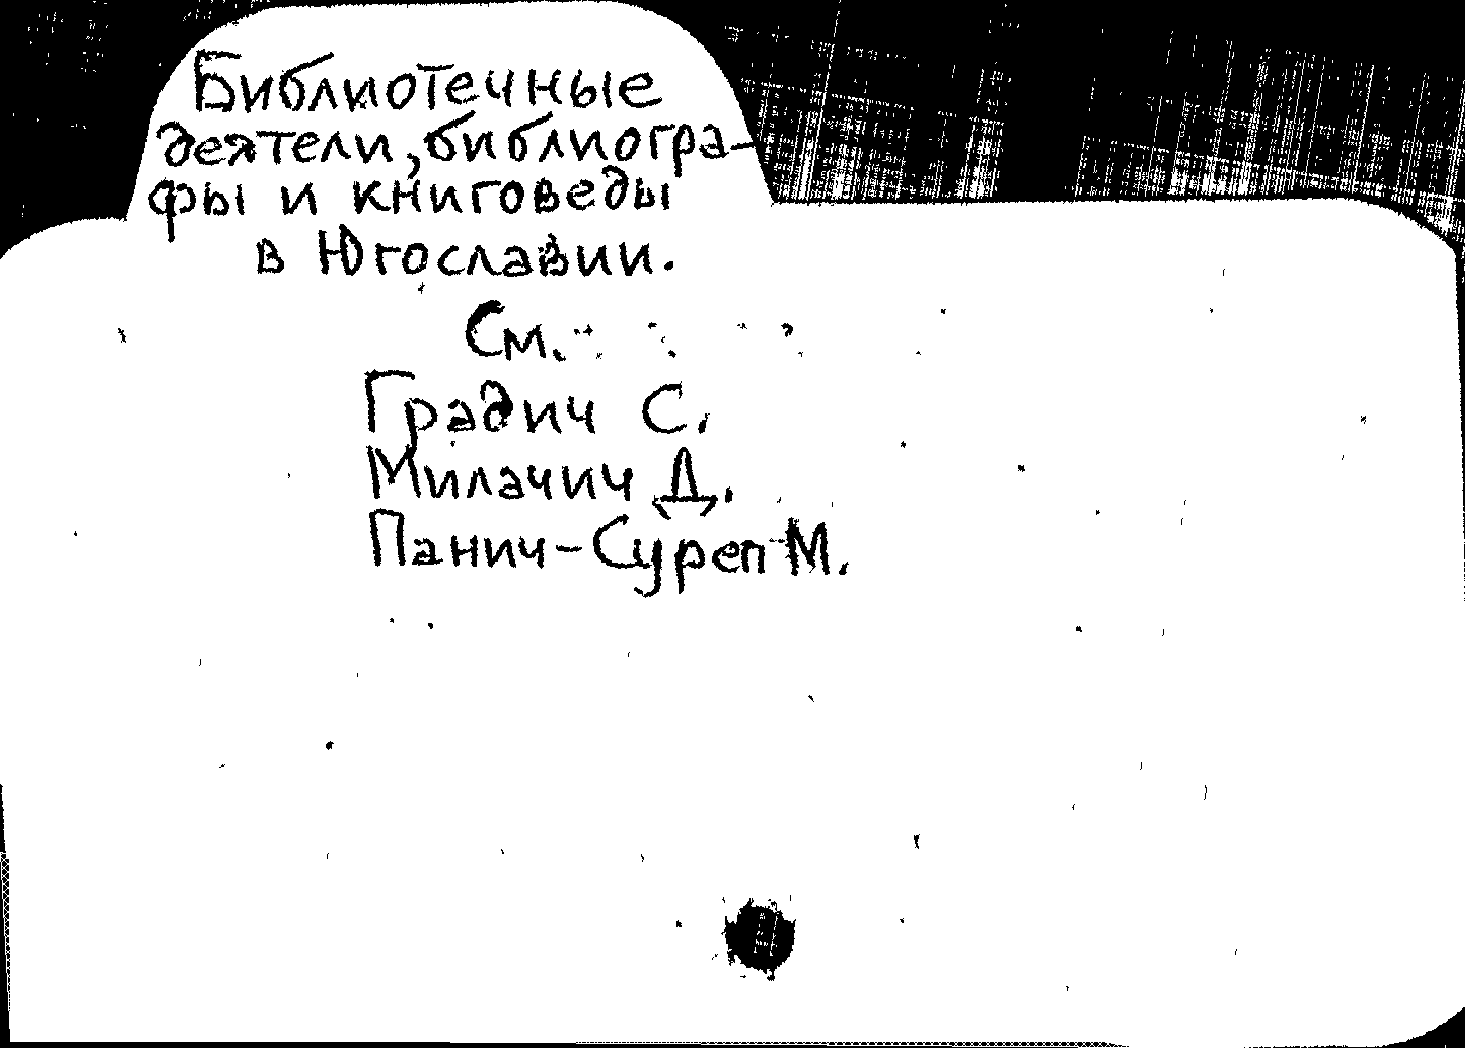 Библиотечные
деятели, библиогра-
фы и книговеды
в Югославии.
См.
Градич С.
Милачич Д.
Панич-Суреп М.